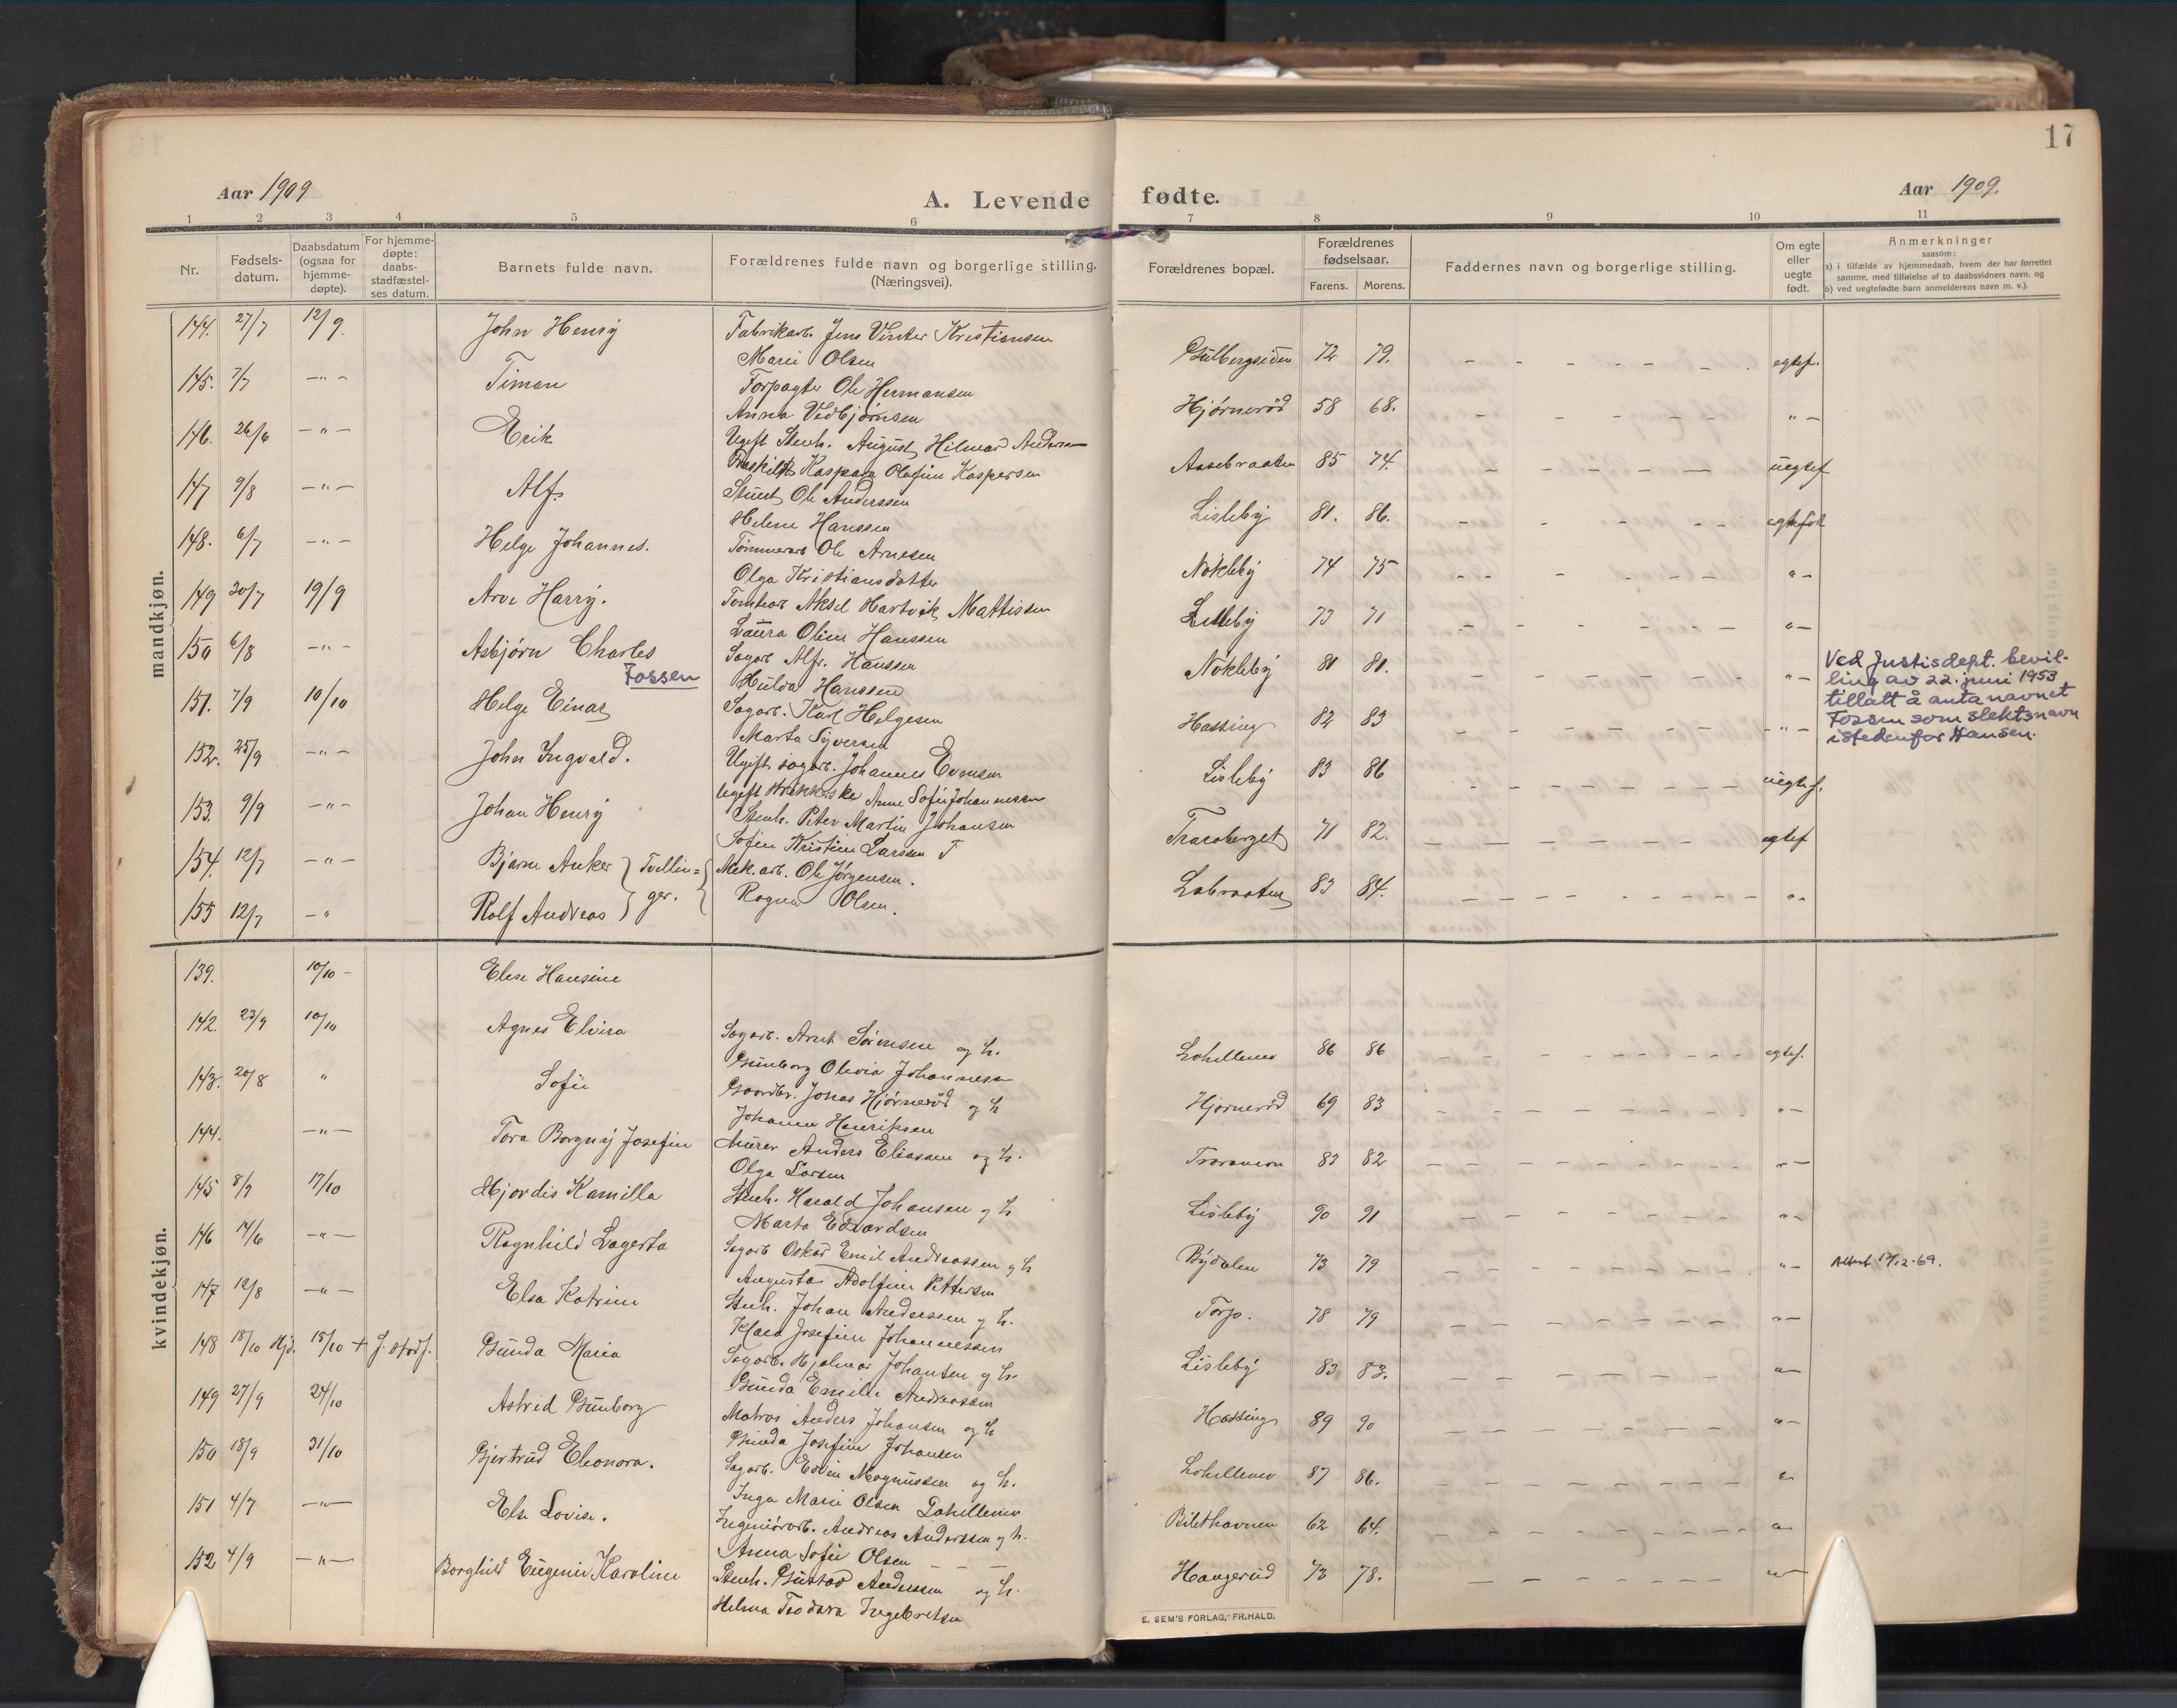 17
Aar 1909 A. Levende fødte. Aar 1909.
1 2 3 4 5 6 7 8 9 10 11
Nr. Fødsels-datum. Daabsdatum (ogsaa for hjemme-døpte). For hjemme-døpte: daabs-stadfæstel-ses datum. Barnets fulde navn. Forældrenes fulde navn og borgerlige stilling. (Næringsvei). Forældrenes bopæl. Forældrenes fødselsaar. Farens. Morens. Faddernes navn og borgerlige stilling. Om egte eller uegte født. Anmerkninger saasom: a) i tilfælde av hjemmedaab, hvem der har forrettet samme, med tilføielse af to daabsvidners navn, og b) ved uegtefødte barn anmelderens navn m. v.).
mandkjøn.
144. 27/7 12/9. John Henry Fabrikarb. Jens Vinter Kristiansen
Marie Olsen Gulbergsiden 72 79. egtef.
145. 7/7 —"— Timan Forpagter Ole Hermansen
Anna Vedbjørnsen Hjørnerød 58 68. "—
146. 26/6 —"— Erik Ugift Stenh. August Hilmar Andersen
Kaspara Olafine Kaspersen Aasebraaten 85 74. uegtef
147 9/8 —"— Alf. Ole Anderssen
Helene Hanssen Lisleby 81. 86. egtefød
148. 6/7 —"— Helge Johannes. Tømmerarb Ole Arnesen
Olga Kristiansdatter Nøkleby 74 75 "—
149 30/7 19/9 Arve Harry. Tomtearb Aksel Hartvik Mattissen
Laura Oline Hanssen Lisleby 73 71 "—
150 6/8 —"— Asbjørn Charles Sagarb Alfr. Hanssen
Fossen
Hulda Hanssen Nøkleby 81 81. "—
Ved Justisdept. bevil-
ling av 22. juni 1953
tillatt å anta navnet
Fossen som slektsnavn
istedenfor Hansen.
151. 7/9 10/10 Helge Einar Sagarb. Karl Helgesen
Marta Syversen Hassing 82 83 —"—
152. 25/9 —"— John Ingvald. Ugift sagarb. Johannes Evensen
Ugift Anne Sofie Johannessen Lisleby 83 86 uegtef.
153. 9/9 —"— Johan Henry Stenh. Peter Martin Johansen
Sofie Kristine Larssen Traraberget 71 82. egtef
154. 12/7 —"— Bjarne Anker } Tvillin= { Mek. arb. Ole Jørgensen.
155 12/7 —" Rolf Andreas } ger. { Ragna Olsen. Labraaten 83 84. "—
kvindekjøn.
139. 10/10 — Else Hansine
142. 23/9 10/10 Agnes Elvira Sagarb. Arnt Sørensen og h.
Gunborg Olivia Johannessen 86 86 egtef.
143. 20/8 " Sofie Gaardbr. Jonas Hjørnerød og h
Johanne Henriksen Hjørnerød 69 83 "—
144. —"— Tora Borgny Josefine Murer Anders Eliassen og h.
Olga Larsen Traraveien 83 82 "—
145 8/9 17/10 Hjørdis Kamilla Stenh. Harald Johansen og h
Marta Edvardsen Lisleby 90 91 "—
146 14/6 —"— Ragnhild Lagerta Sagarb Oskar Emil Andreassen og h
Augusta Adolfine Pettersen Bydalen 73 79 "— Attest 17/12-69.
147 12/8 —"— Elsa Katrine Stenh. Johan Anderssen og h.
Klara Josefine Johannessen Torp. 78 79 "—
148 18/10 Hjd. 18/10 + Gunda Maria Sagarb. Hjalmar Johansen og h.
Gunda Emilie Andreassen Lisleby 83 83. "—
149 27/9 24/10 Astrid Gunborg Matros Anders Johansen og h
Gunda Josefine Johansen Hassing 89 90 "—
150 18/9 31/10 Gjertrud Eleonora. Sagarb. Edvin Magnussen og h.
Inga Marie Olsen 87 86. "
151 4/7 —"— Else Lovise. Andreas Anderssen og h.
Anna Sofie Olsen — — — Bilethavnen 62 64. "—
152 4/9 —"— Borghild Eugenie Karoline Stenh. Gustav Anderssen og h.
Helma Teodara Ingebretsen Haugerud 73 78. "—
E. SEM'S FORLAG, FR.HALD.